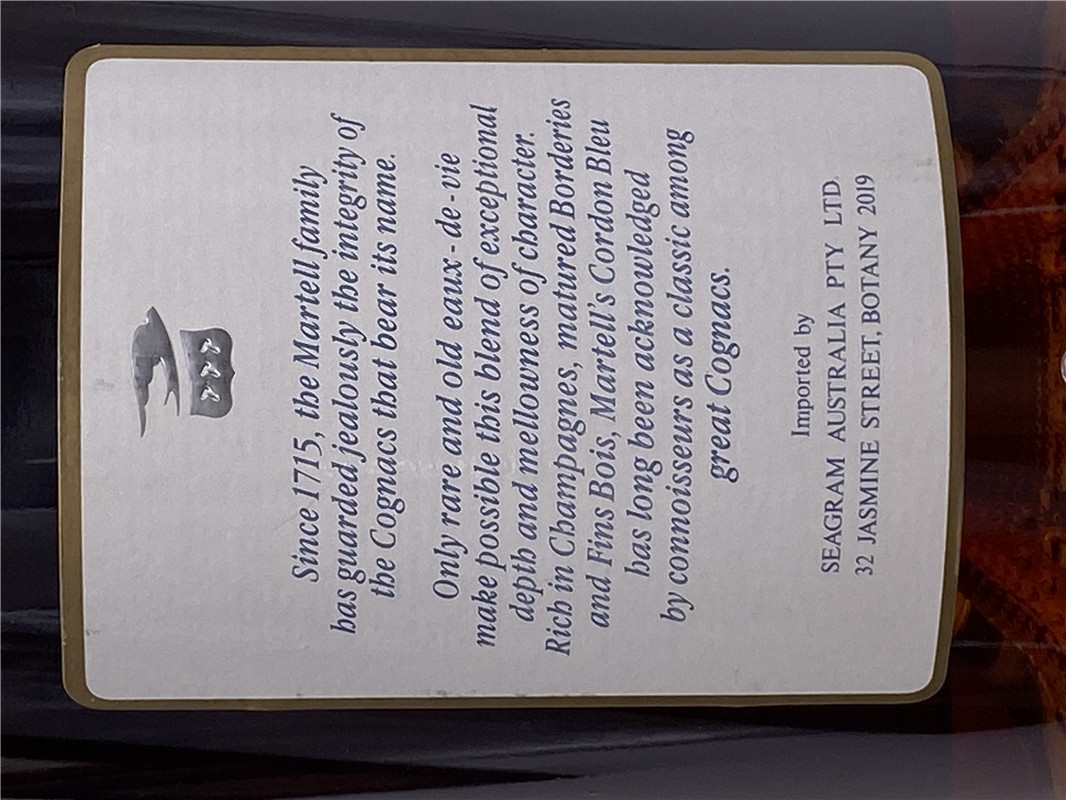 Since 1715, the Martell family
has guarded jealously the integrity of
the Cognacs that bear its name.
Only rare and old eaux - de - vie
make possible this blend of exceptional
depth and mellowness of character.
Rich in Champagnes, matured Borderies
and Fins Bois, Martell's Cordon Bleu
has long been acknowledged
by connoisseurs as a classic among
great Cognacs.
Imported by
SEAGRAM AUSTRALIA PTY LTD.
32 JASMINE STREET, BOTANY 2019